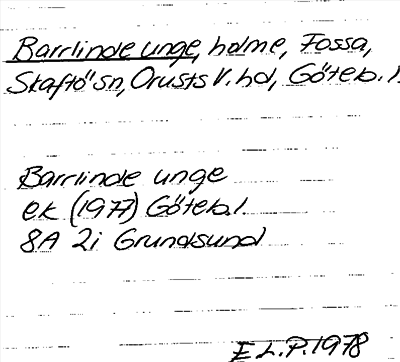 Barrlinde unge, holme, Fossa,
Skaftö sn, Orusts V. hd, Göteb. l.
Barrlinde unge
ek (1977) Göteb. l.
8A 2i Grundsund
E L. P. 1978